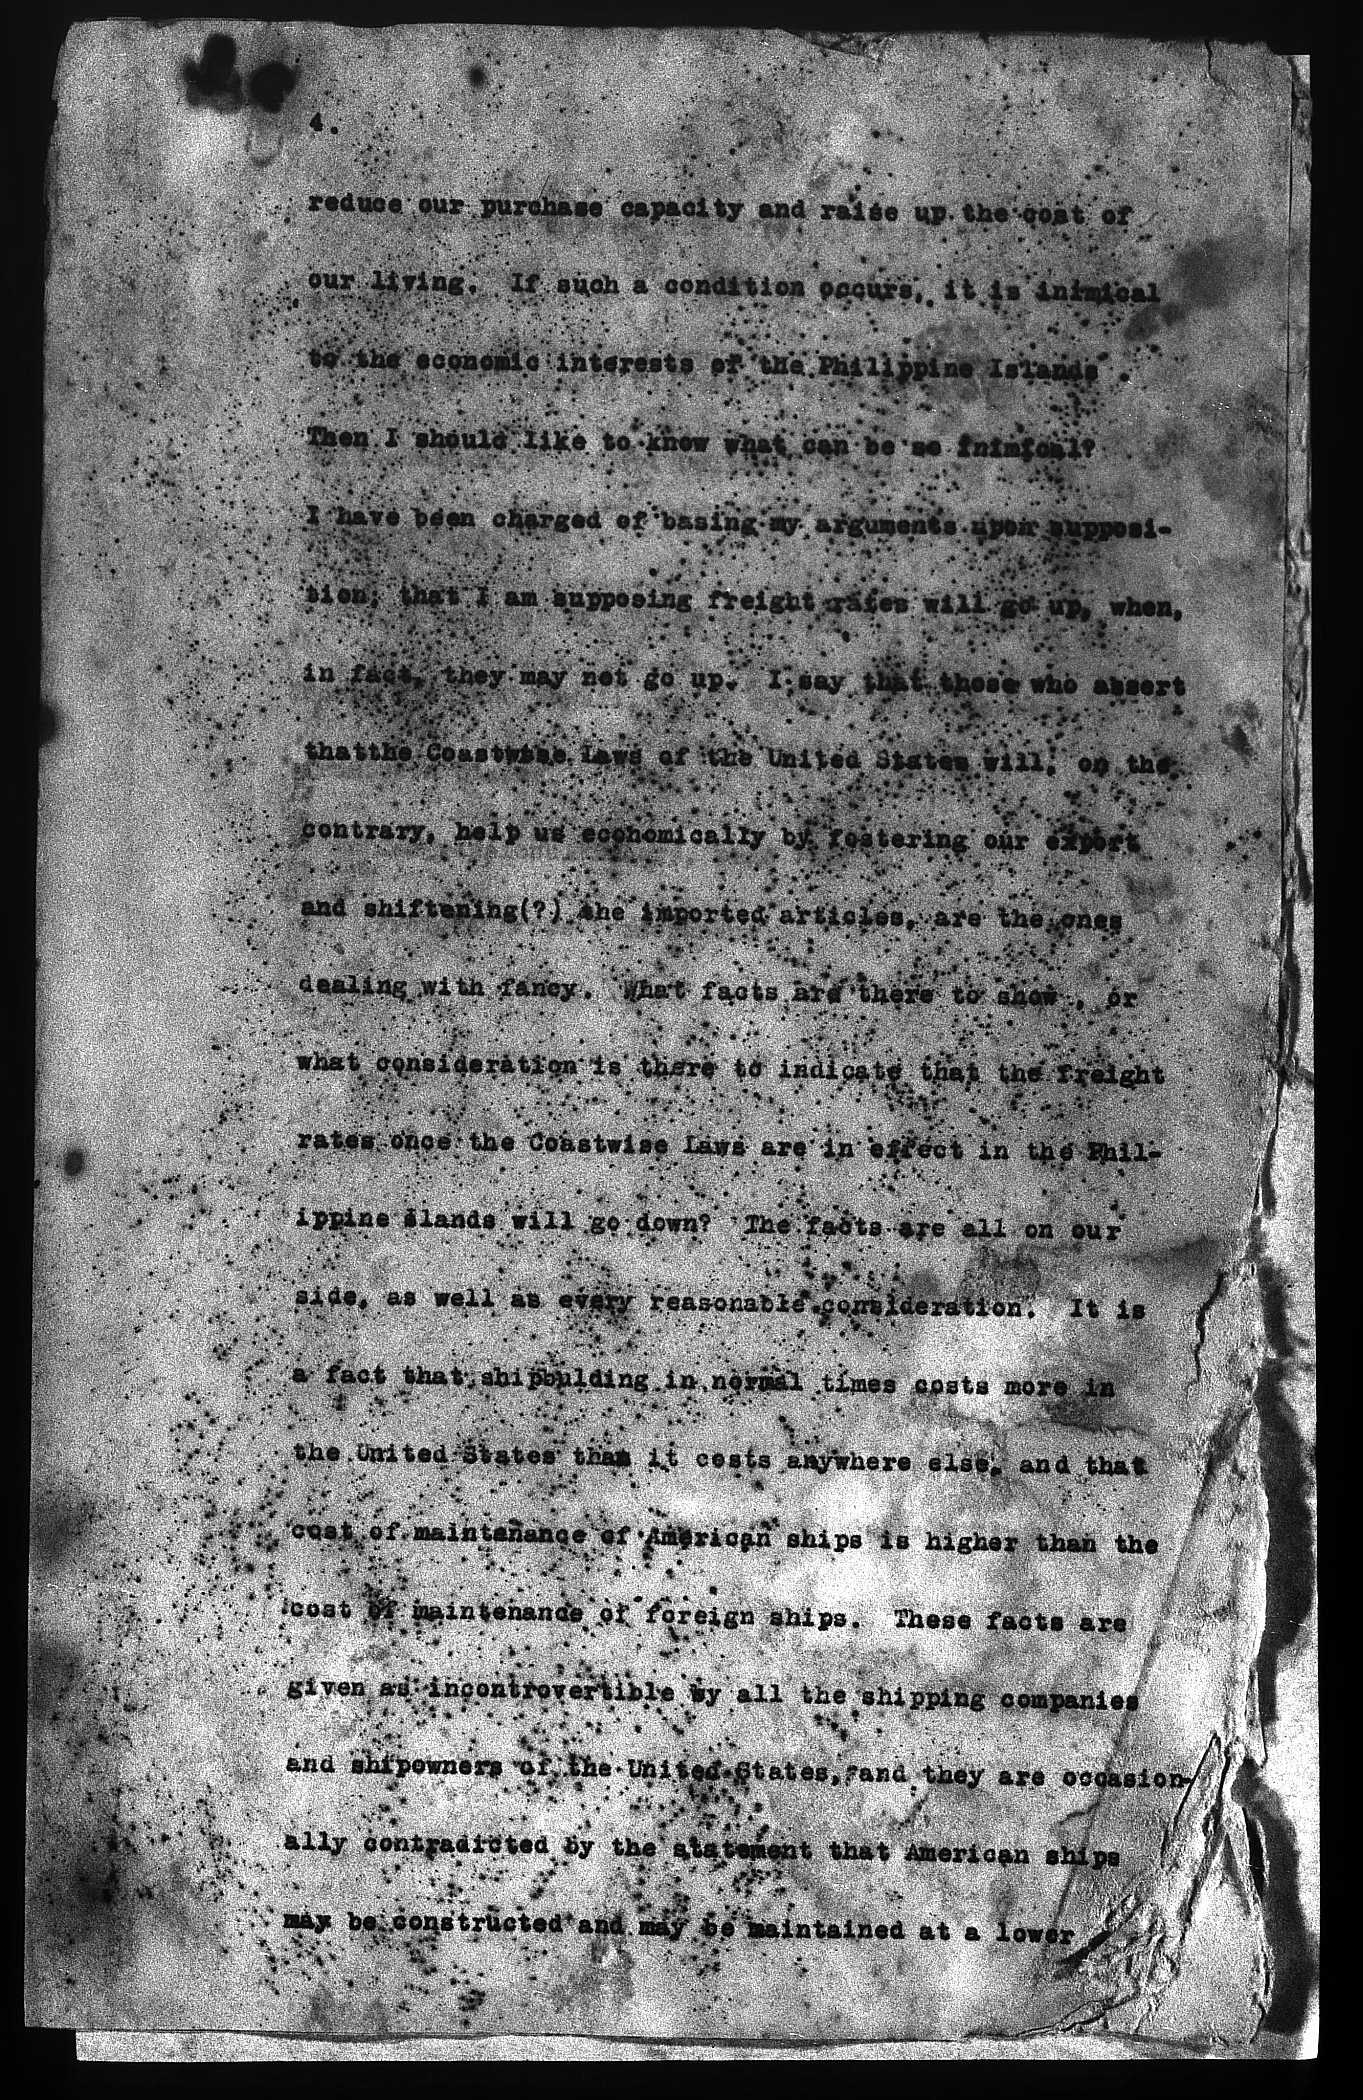 4.
reduce our purchase capacity and raise up the cost of
our living. If such a condition occurs, it is inimical
to the economic interests of the Philippine Islands .
Then I should like to know what can be so inimical?
I have been charged of basing my arguments upon supposi-
tion; that I am supposing freight rates will go up, when,
in fact, they may not go up. I say that those who assert
thatthe Coastwise Laws of the United States will, on the
contrary, help us economically by fostering our export
and shiftening(?) the imported articles, are the ones
dealing with fancy. What facts are there to show , or
what consideration is there to indicate that the freight
rates once the Coastwise Laws are in effect in the Phil-
ippine slands will go down? The facts are all on our
side, as well as every reasonable consideration. It is
a fact that shipbulding in normal times costs more in
the United States than it costs anywhere else, and that
cost of maintenance of American ships is higher than the
cost of maintenance of foreign ships. These facts are
given as incontrovertible by all the shipping companies
and shipowners of the United States, and they are occasion-
ally contradicted by the statement that American ships
may be constructed and may be maintained at a lower